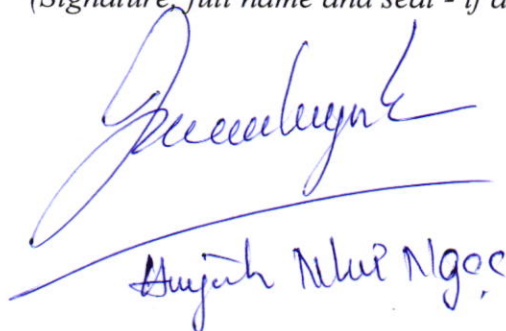 (Signature, full name and seal - if a
Huỳnh Như Ngọc